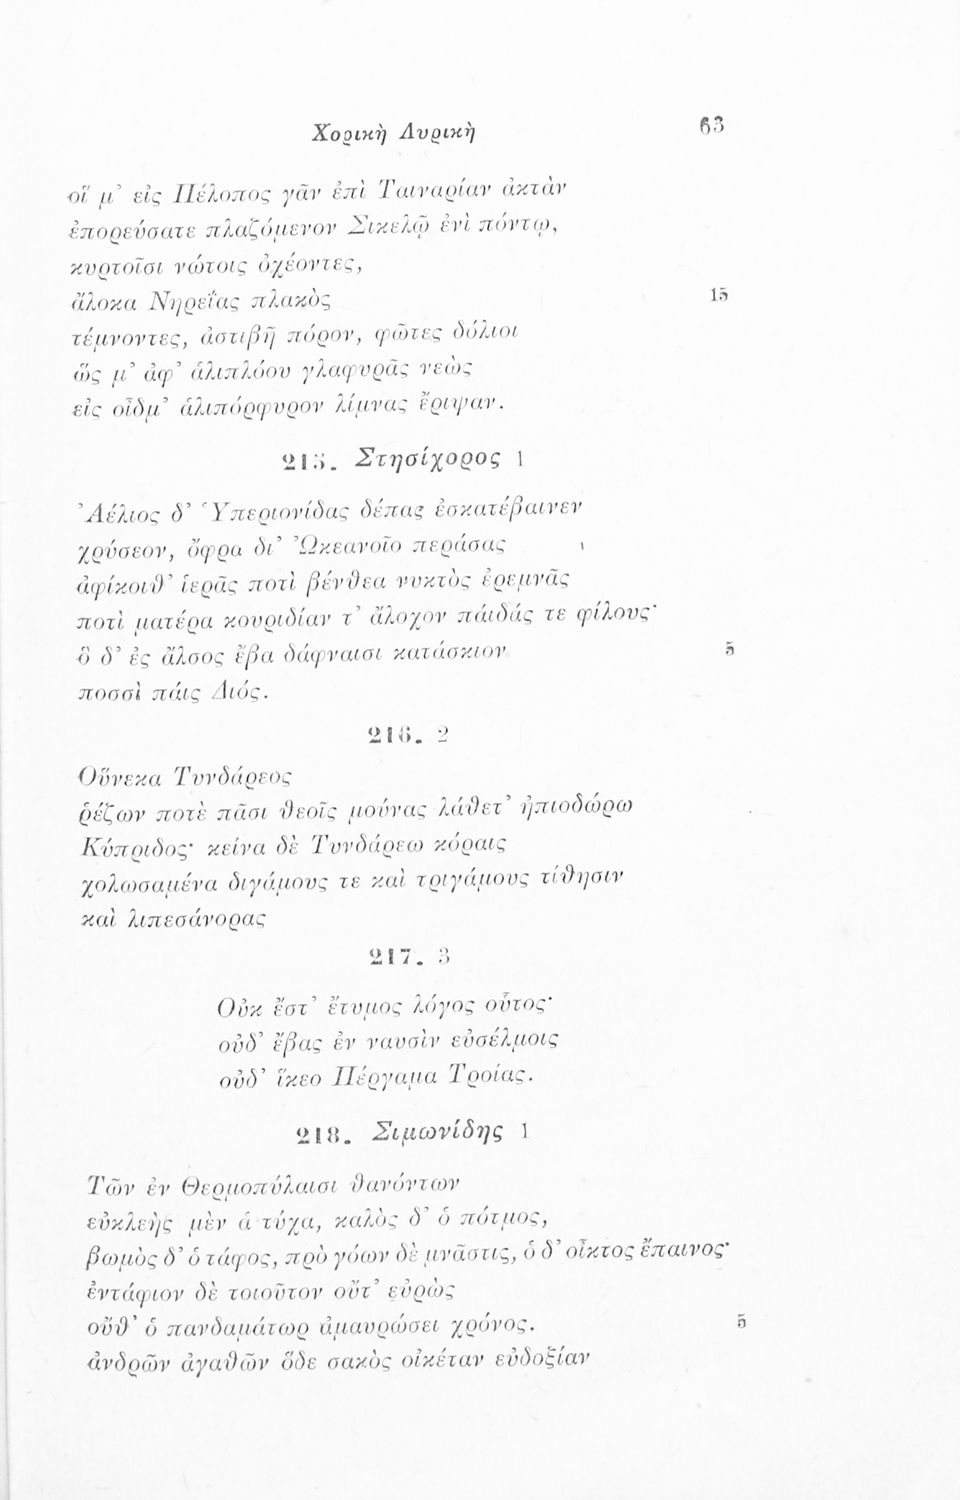 Χορικὴ Λυρικὴ 63
οἵ μ’ εἰς Πέλοπος γᾶν ἐπὶ Ταιναρίαν ἀκτὰν
ἐπορεύσατε πλαζόμενον Σικελῷ ἐνὶ πόντῳ,
κυρτοῖσι νώτοις ὀχέοντες,
ἄλοκα Νηρεΐας πλακὸς 15
τέμνοντες, ἀστιβῆ πόρον, φῶτες δόλιοι
ὥς μ’ ἀφ’ ἁλιπλόου γλαφυρᾶς νεὼς
εἰς οἶδμ’ ἁλιπόρφυρον λίμνας ἔριψαν.
215. Στησίχορος 1
Ἀέλιος δ’ Ὑπεριονίδας δέπας ἐσκατέβαινεν
χρύσεον, ὄφρα δι’ Ὠκεανοῖο περάσας
ἀφίκοιθ’ ἱερᾶς ποτὶ βένθεα νυκτὸς ἐρεμνᾶς
ποτὶ ματέρα κουριδίαν τ’ ἄλοχον πάιδάς τε φίλους·
ὃ δ’ ἐς ἄλσος ἔβα δάφναισι κατάσκιον 5
ποσσὶ πάις Διός.
216. 2
Οὕνεκα Τυνδάρεος
ῥέζων ποτὲ πᾶσι θεοῖς μούνας λάθετ’ ἠπιοδώρω
Κύπριδος· κείνα δὲ Τυνδάρεω κόραις
χολωσαμένα διγάμους τε καὶ τριγάμους τίθησιν
καὶ λιπεσάνορας
217. 3
Οὐκ ἔστ’ ἔτυμος λόγος οὗτος·
οὐδ’ ἔβας ἐν ναυσὶν εὐσέλμοις
οὐδ’ ἵκεο Πέργαμα Τροίας.
218. Σιμωνίδης 1
Τῶν ἐν Θερμοπύλαισι θανόντων
εὐκλεὴς μὲν ἁ τύχα, καλὸς δ’ ὁ πότμος,
βωμὸς δ’ ὁ τάφος, πρὸ γόων δὲ μνᾶστις, ὁ δ’ οἶκτος ἔπαινος·
ἐντάφιον δὲ τοιοῦτον οὔτ’ εὐρὼς
οὔθ’ ὁ πανδαμάτωρ ἀμαυρώσει χρόνος. 5
ἀνδρῶν ἀγαθῶν ὅδε σακὸς οἰκέταν εὐδοξίαν